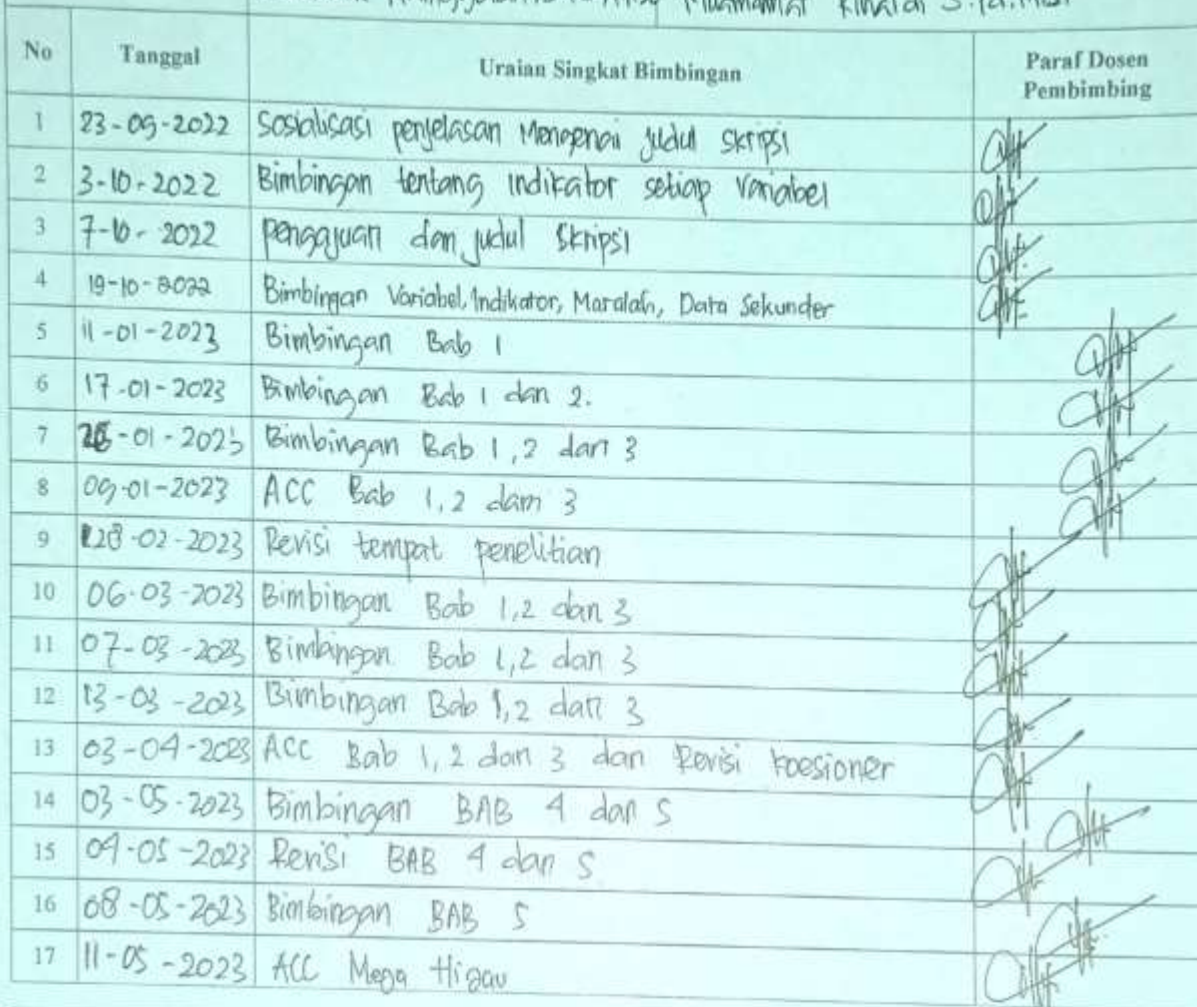 No Tanggal Uraian Singkat Bimbingan Paraf Dosen
Pembimbing
1 23-09-2022 Sosialisasi penjelasan Mengenai judul skripsi
2 3-10-2022 Bimbingan tentang indikator setiap Variabel
3 7-10-2022 pengajuan dan judul Skripsi
4 19-10-2022 Bimbingan Variabel, Indikator, Maralah, Data Sekunder
5 11-01-2023 Bimbingan Bab 1
6 17-01-2023 Bimbingan Bab 1 dan 2.
7 -01-2023 Bimbingan Bab 1,2 dan 3
8 09-01-2023 ACC Bab 1,2 dam 3
9 28-02-2023 Revisi tempat penelitian
10 06-03-2023 Bimbingan Bab 1,2 dan 3
11 07-03-2023 Bimbingan Bab 1,2 dan 3
12 13-03-2023 Bimbingan Bab 1,2 dan 3
13 03-04-2023 ACC Bab 1,2 dan 3 dan Revisi koesioner
14 03-05-2023 Bimbingan BAB 4 dan 5
15 04-05-2023 Revisi BAB 4 dan 5
16 08-05-2023 Bimbingan BAB 5
17 11-05-2023 ACC Mega Higau